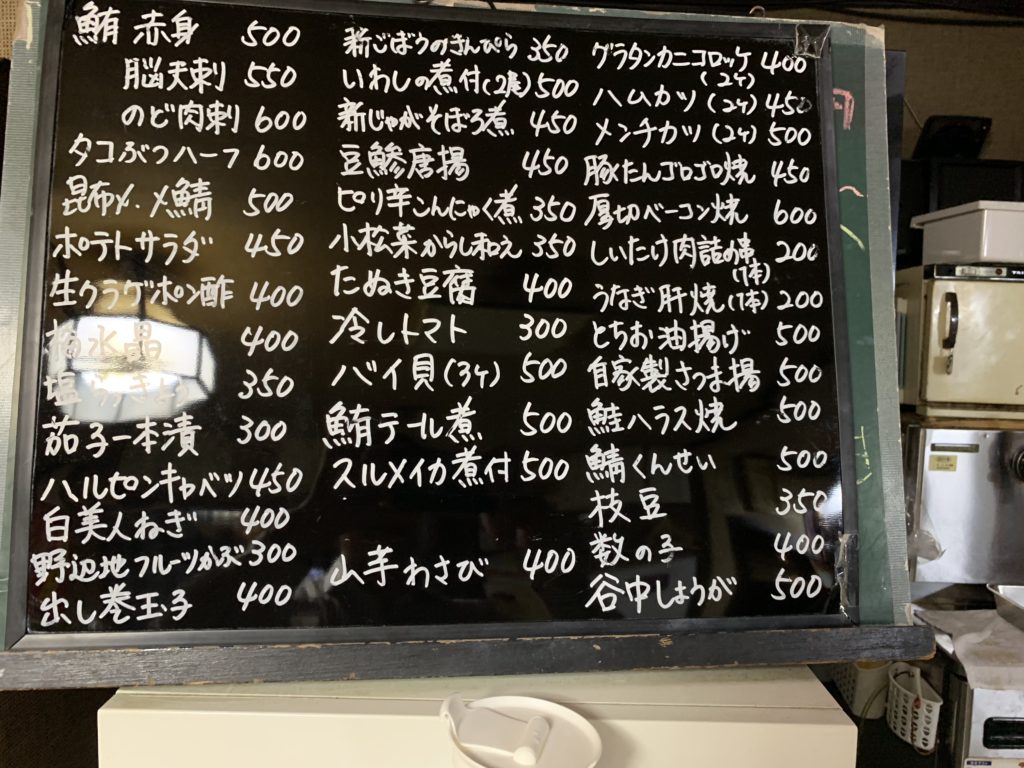 鮪 赤身 500
脳天刺 550
のど肉刺 600
タコぶつハーフ 600
昆布〆.〆鯖 500
ポテトサラダ 450
生クラゲポン酢 400
梅水晶 400
塩らっきょう 350
茄子一本漬 300
ハルピンキャベツ 450
白美人ねぎ 400
野辺地フルーツかぶ 300
出し巻玉子 400
新ごぼうのきんぴら 350
いわしの煮付(2尾) 500
新じゃがそぼろ煮 450
豆鯵唐揚 450
ピリ辛こんにゃく煮 350
小松菜からし和え 350
たぬき豆腐 400
冷しトマト 300
バイ貝(3ケ) 500
鮪テール煮 500
スルメイカ煮付 500
山芋わさび 400
グラタンカニコロッケ 400
(2ケ)
ハムカツ(2ケ) 450
メンチカツ(2ケ) 500
豚たんゴロゴロ焼 450
厚切ベーコン焼 600
しいたけ肉詰め串 200
(1本)
うなぎ肝焼(1本) 200
とちお油揚げ 500
自家製さつま揚 500
鮭ハラス焼 500
鯖くんせい 500
枝豆 350
数の子 400
谷中しょうが 500